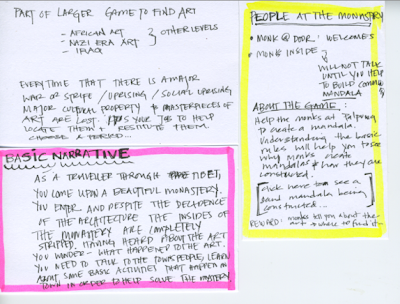 PART OF LARGER GAME TO FIND ART
- AFRICAN ART
- NAZI ERA ART
- IRAQ
OTHER LEVELS
EVERYTIME THAT THERE IS A MAJOR
WAR OR STRIFE / UPRISING / SOCIAL UPRISING
MAJOR CULTURAL PROPERTY & MASTERPIECES OF
ART ARE LOST. IT'S YOUR JOB TO HELP
LOCATE THEM & RESTITUTE THEM.
CHOOSE A PERIOD...
BASIC NARRATIVE
AS A TRAVELLER THROUGH TIBET,
YOU COME UPON A BEAUTIFUL MONASTERY.
YOU ENTER AND DESPITE THE DECADENCE
OF THE ARCHITECTURE THE INSIDES OF
THE MONASTERY ARE COMPLETELY
STRIPPED. HAVING HEARD ABOUT THE ART
YOU WONDER - WHAT HAPPENED TO THE ART.
YOU NEED TO TALK TO THE TOWNSPEOPLE, LEARN
ABOUT SOME BASIC ACTIVITIES THAT HAPPEN IN
TOWN IN ORDER TO HELP SOLVE THE MYSTERY.
PEOPLE AT THE MONASTERY
• MONK @ DOOR: WELCOMES
• MONK INSIDE
WILL NOT TALK
UNTIL YOU HELP
TO BUILD
MANDALA
ABOUT THE GAME:
Help the monks at
to create a mandala.
Understanding the basic
rules will help you to see
why monks create
mandalas & how they are
constructed.
click here to see a
sand mandala being
constructed...
REWARD: monks tell you about the
art & where to find it